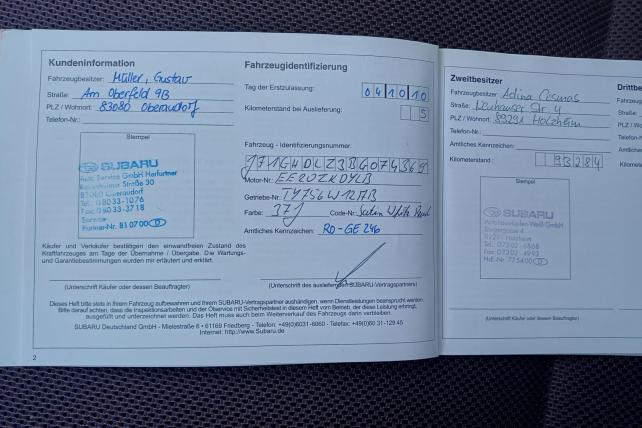 Kundeninformation
Fahrzeugbesitzer: Müller, Gustav
Straße: Am Oberfeld 9B
PLZ / Wohnort: 83080 Oberaudorf
Telefon-Nr.:
Stempel
SUBARU
Auto Service GmbH Herfurtner
Straße 30
83080 Oberaudorf
Tel.: 08033-1076
Fax: 08033-3718
Service
Partner-Nr. 810700
Käufer und Verkäufer bestätigen den einwandfreien Zustand des
Kraftfahrzeuges am Tage der Übernahme / Übergabe. Die Wartungs-
und Garantiebestimmungen wurden mir erläutert und erklärt.
(Unterschrift Käufer oder dessen Beauftragter)
Fahrzeugidentifizierung
Tag der Erstzulassung: 041010
Kilometerstand bei Auslieferung: 5
Fahrzeug - Identifizierungsnummer:
Motor-Nr.:
Getriebe-Nr.: TY756W12AB
Farbe: 37J Code-Nr.: Satin White Pearl
Amtliches Kennzeichen: RO-GE 246
(Unterschrift des ausliefernden SUBARU-Vertragspartners)
Dieses Heft bitte stets in Ihrem Fahrzeug aufbewahren und Ihrem SUBARU-Vertragspartner aushändigen, wenn Dienstleistungen beansprucht werden.
Bitte darauf achten, dass die Inspektionsarbeiten und der Ölservice mit Sicherheitstest in diesem Heft vom Betrieb, der diese Leistung erbringt,
ausgefüllt und unterzeichnet werden. Das Heft muss auch beim Weiterverkauf des Fahrzeugs darin verbleiben.
SUBARU Deutschland GmbH - Mielestraße 6 • 61169 Friedberg - Telefon: +49(0)6031-6060 - Telefax: +49(0)60 31-129 45
Internet: http://www.Subaru.de
2
Zweitbesitzer
Fahrzeugbesitzer: Adina
Straße: Str. 4
PLZ / Wohnort: 89291 Holzheim
Telefon-Nr.:
Amtliches Kennzeichen:
Kilometerstand: 93284
Stempel
SUBARU
89291 Holzheim
Tel.: 07302 - 6868
Fax: 07302 - 4993
Hdl.-Nr. 775400
(Unterschrift Käufer oder dessen Beauftragter)
Drittbe
Fahrzeug
Straße:
PLZ / Wo
Telefon-N
Amtliche
Kilometer